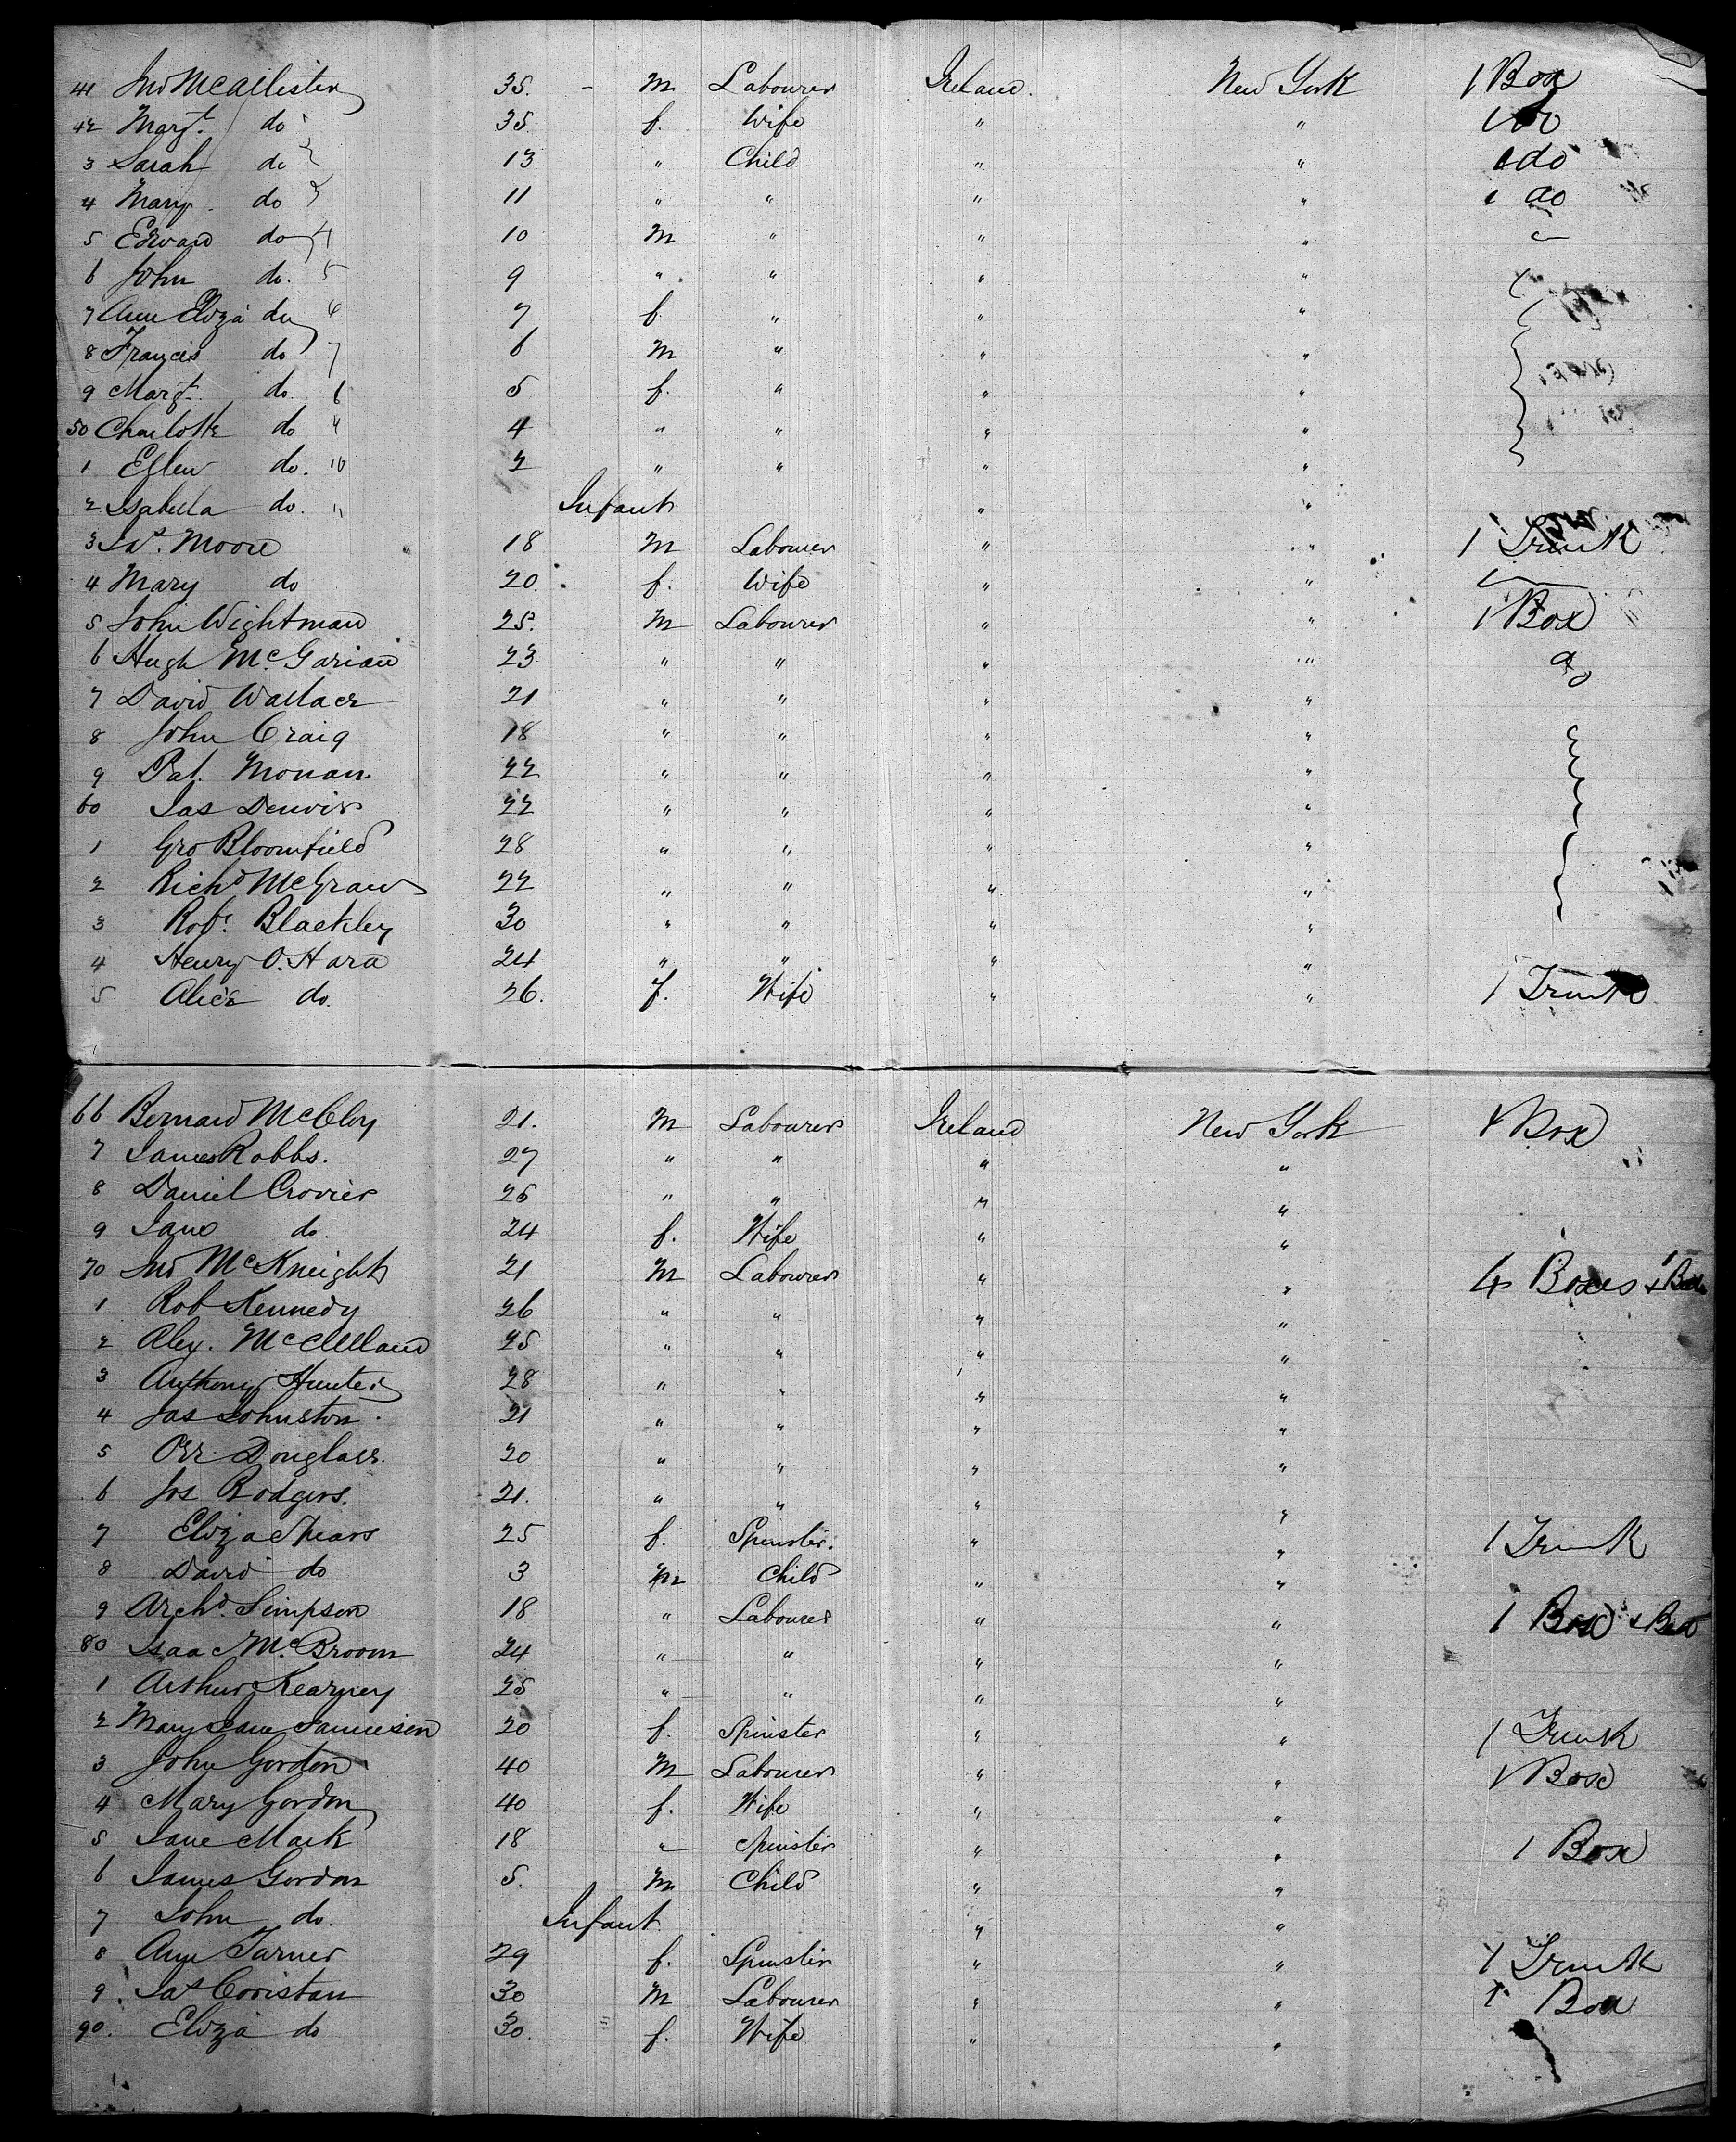 41 Jno McAllister 35. - M Labourer Ireland. New York 1 Box
42 Margt. do 35. f. Wife " " 1 do
3 Sarah do 13 " Child " " 1 do
4 Mary do 3 11 " " " " 1 do
5 Edward do 4 10 M " " "
6 John do. 5 9 " " " "
7 Ann Eliza do 6 7 f. " " "
8 Francis do 7 6 M " " "
9 Margt. do. 5 f. " " "
50 Charlotte do 4 " " " "
1 Ellen do. 10 2 " " " "
2 Isabella do. 11 Infant " "
3 Jas. Moore 18 M Labourer " " 1 Trunk
4 Mary do 20. f. Wife " "
5 John Wightman 25. M Labourer " " 1 Box
6 Hugh McGarian 23 " " " " do
7 David Wallace 21 " " " "
8 John Craig 18 " " " "
9 Pat. Monan. 22 " " " "
60 Jas Denvir 22 " " " "
1 Geo Bloomfield 28 " " " "
2 Richd McGraw 22 " " " "
3 Robt. Blackley 30 " " " "
4 Henry O. Hara 24 " " " "
5 Alice do. 26. f. Wife " " 1 Trunk
66 Bernard McCloy 21. M Labourer Ireland New York 1 Box
7 James Robbs. 27 " " " "
8 Daniel Crovier 25 " " " "
9 Jane do. 24 f. Wife " "
70 Jno McKneight 21 M Labourer " " 4 Boxes
1 Rob Kennedy 26 " " " "
2 Alex. McClelland 25 " " " "
3 Anthony Hunter 28 " " " "
4 Jas Johnston. 21 " " " "
5 Orr Douglass. 20 " " " "
6 Jos Rodgers. 21. " " " "
7 Eliza Spears 25 f. Spinster. " " 1 Trunk
8 David do 3 m Child " "
9 Archd. Simpson 18 " Labourer " " 1 Box & Bed
80 Isaac McBroom 24 " " " "
1 Arthur Kearney 25 " " " "
2 Mary Jane Jamieson 20 f. Spinster " " 1 Trunk
3 John Gordon 40 M Labourer " " 1 Box
4 Mary Gordon 40 f. Wife " "
5 Jane Mark 18 " Spinster " " 1 Box
6 James Gordon 5. M. Child " "
7 John do. Infant " "
8 Ann Turner 29 f. Spinster " " 1 Trunk
9 Jas Coristan 30 M Labourer " " 1 Box
90. Eliza do 30. f. Wife " "